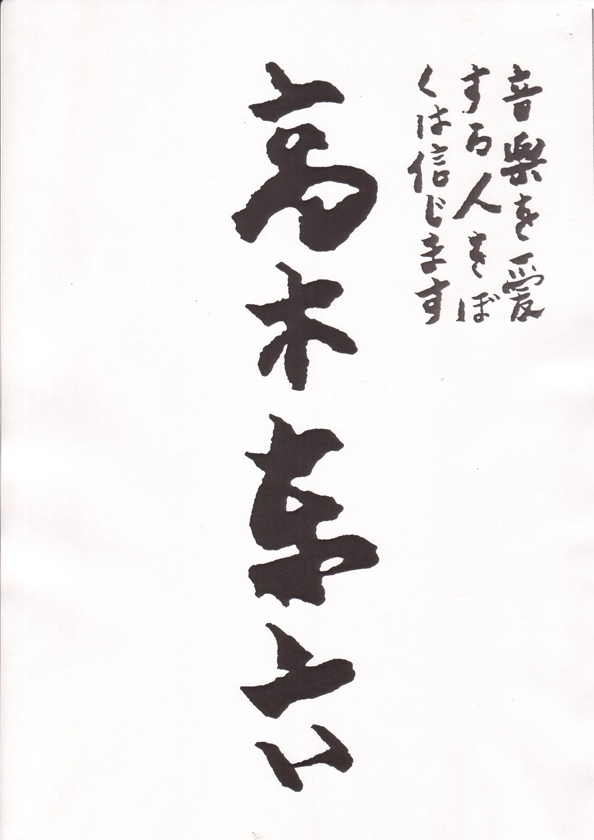 音楽を愛
する人をぼ
くは信じます
高木東六